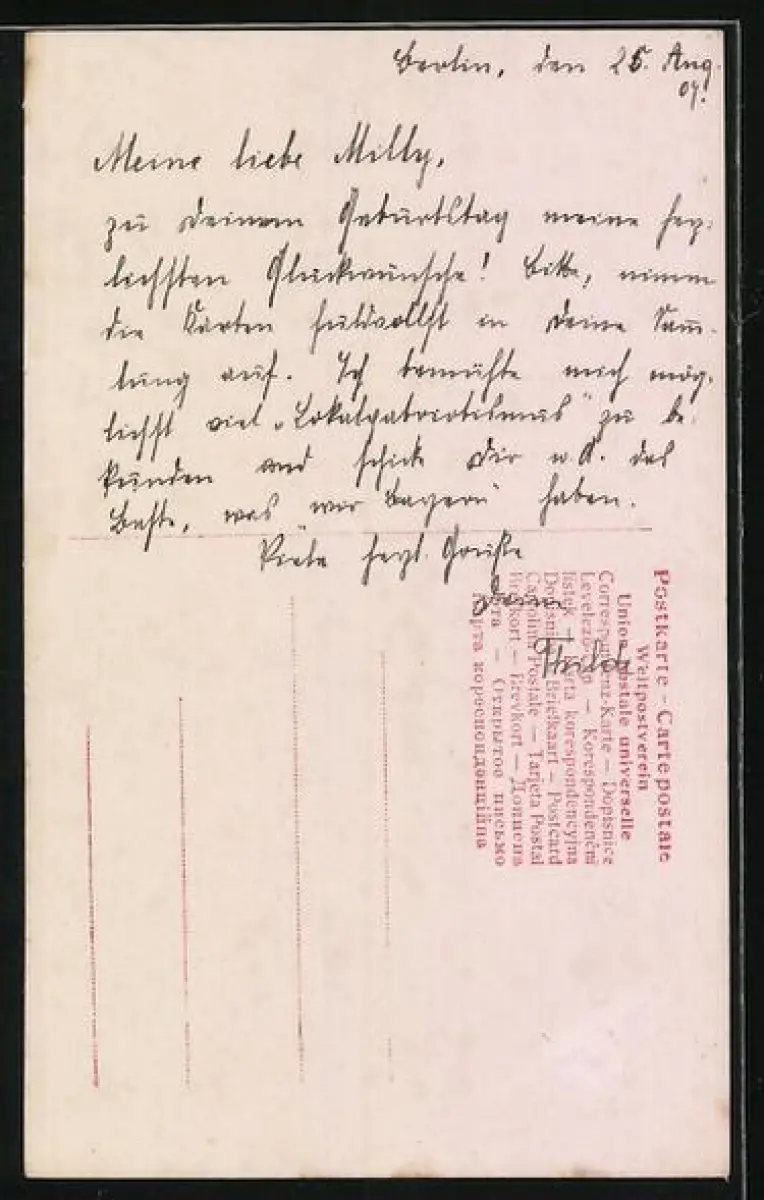 Berlin, den 25. Aug.
07.
Meine liebe Milly,
zu Deinem Geburtstag meine herz-
lichsten Glückwünsche! Bitte, nimm
die Karten huldvollst in Deine Samm-
lung auf. Ich bemühte mich mög-
lichst viel „Lokalpatriotismus" zu be-
kunden und schicke Dir u. A. das
Beste, was „wir Bayern" haben.
Viele herzl. Grüße
Deine
Thilde
Postkarte – Carte postale
Weltpostverein
Union postale universelle
Correspondenz-Karte — Dopisnice
Levelező-lap — Korespondenční
lístek — Karta korespondencyjna
Dopisnica — Briefkaart — Postcard
Cartolina Postale — Tarjeta Postal
Brefkort — Brevkort — Дописна
карта — Открытое письмо
Карта кореспонденційна